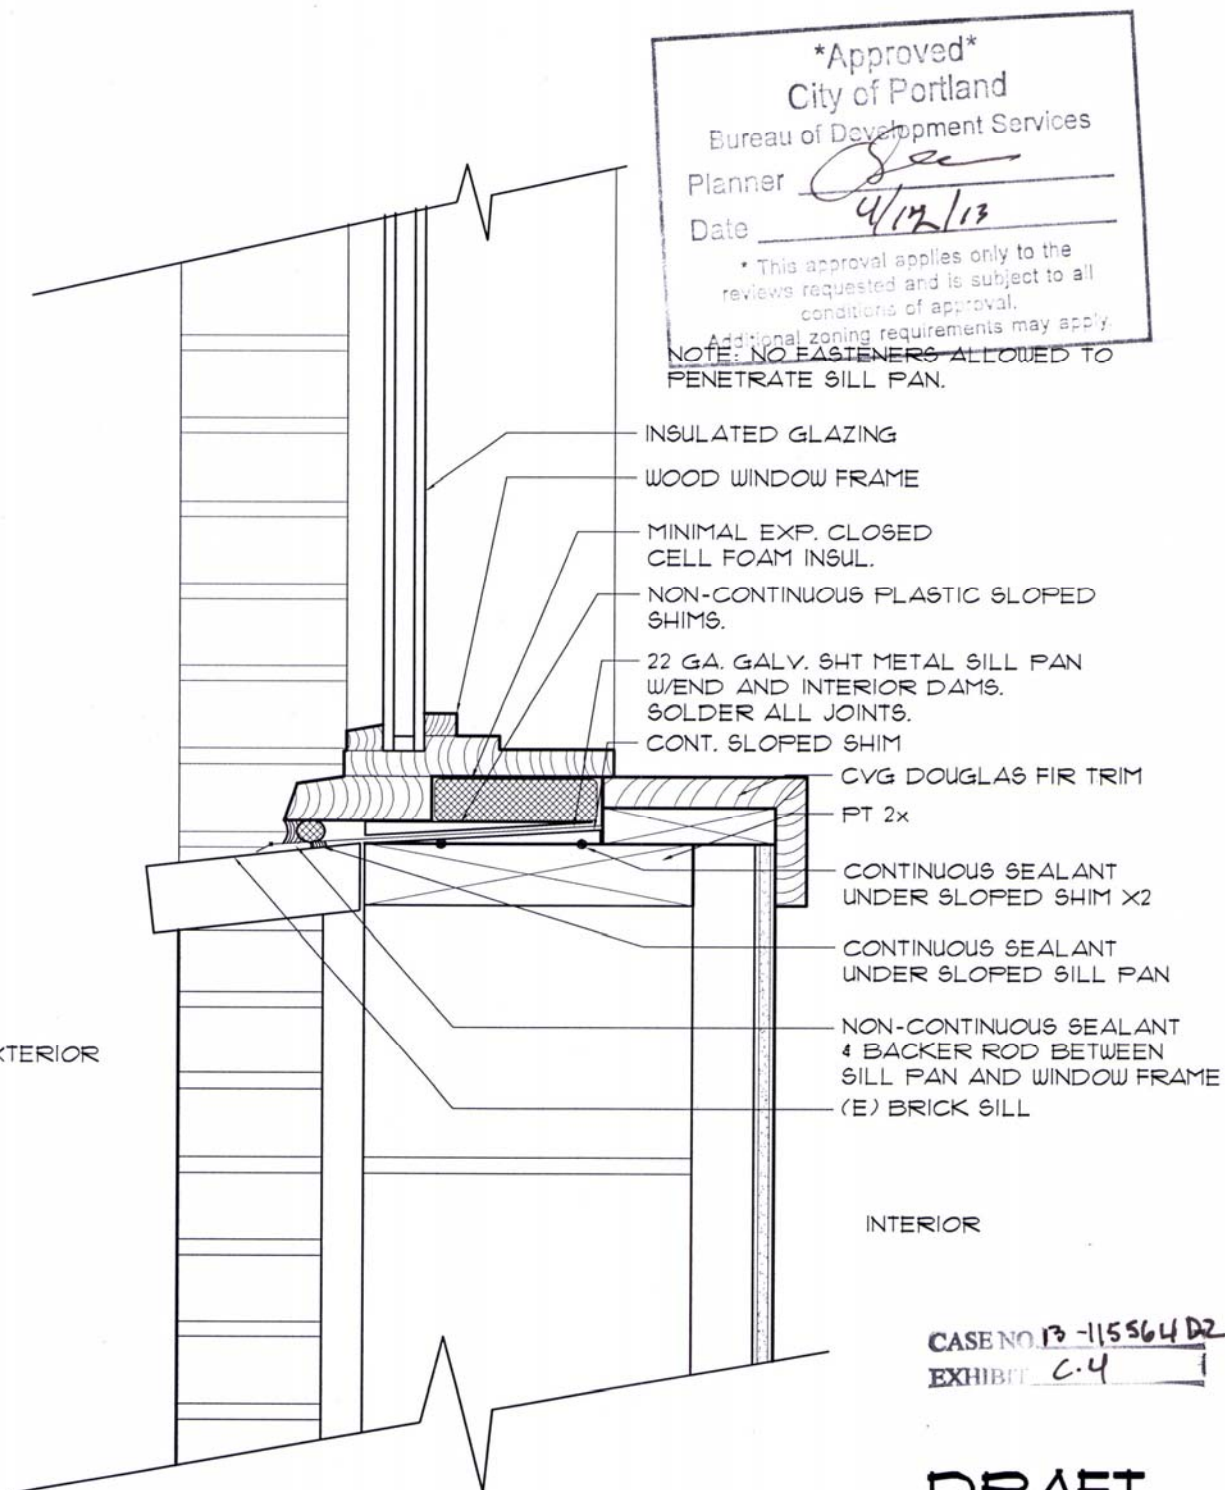 *Approved*
City of Portland
Bureau of Development Services
Planner
Date 4/12/13
* This approval applies only to the
reviews requested and is subject to all
conditions of approval.
Additional zoning requirements may apply.
NOTE: NO FASTENERS ALLOWED TO
PENETRATE SILL PAN.
INSULATED GLAZING
WOOD WINDOW FRAME
MINIMAL EXP. CLOSED
CELL FOAM INSUL.
NON-CONTINUOUS PLASTIC SLOPED
SHIMS.
22 GA. GALV. SHT METAL SILL PAN
W/END AND INTERIOR DAMS.
SOLDER ALL JOINTS.
CONT. SLOPED SHIM
CVG DOUGLAS FIR TRIM
PT 2x
CONTINUOUS SEALANT
UNDER SLOPED SHIM X2
CONTINUOUS SEALANT
UNDER SLOPED SILL PAN
NON-CONTINUOUS SEALANT
& BACKER ROD BETWEEN
SILL PAN AND WINDOW FRAME
(E) BRICK SILL
XTERIOR
INTERIOR
CASE NO. 13-115564 DZ
EXHIBIT C.4
DRAFT